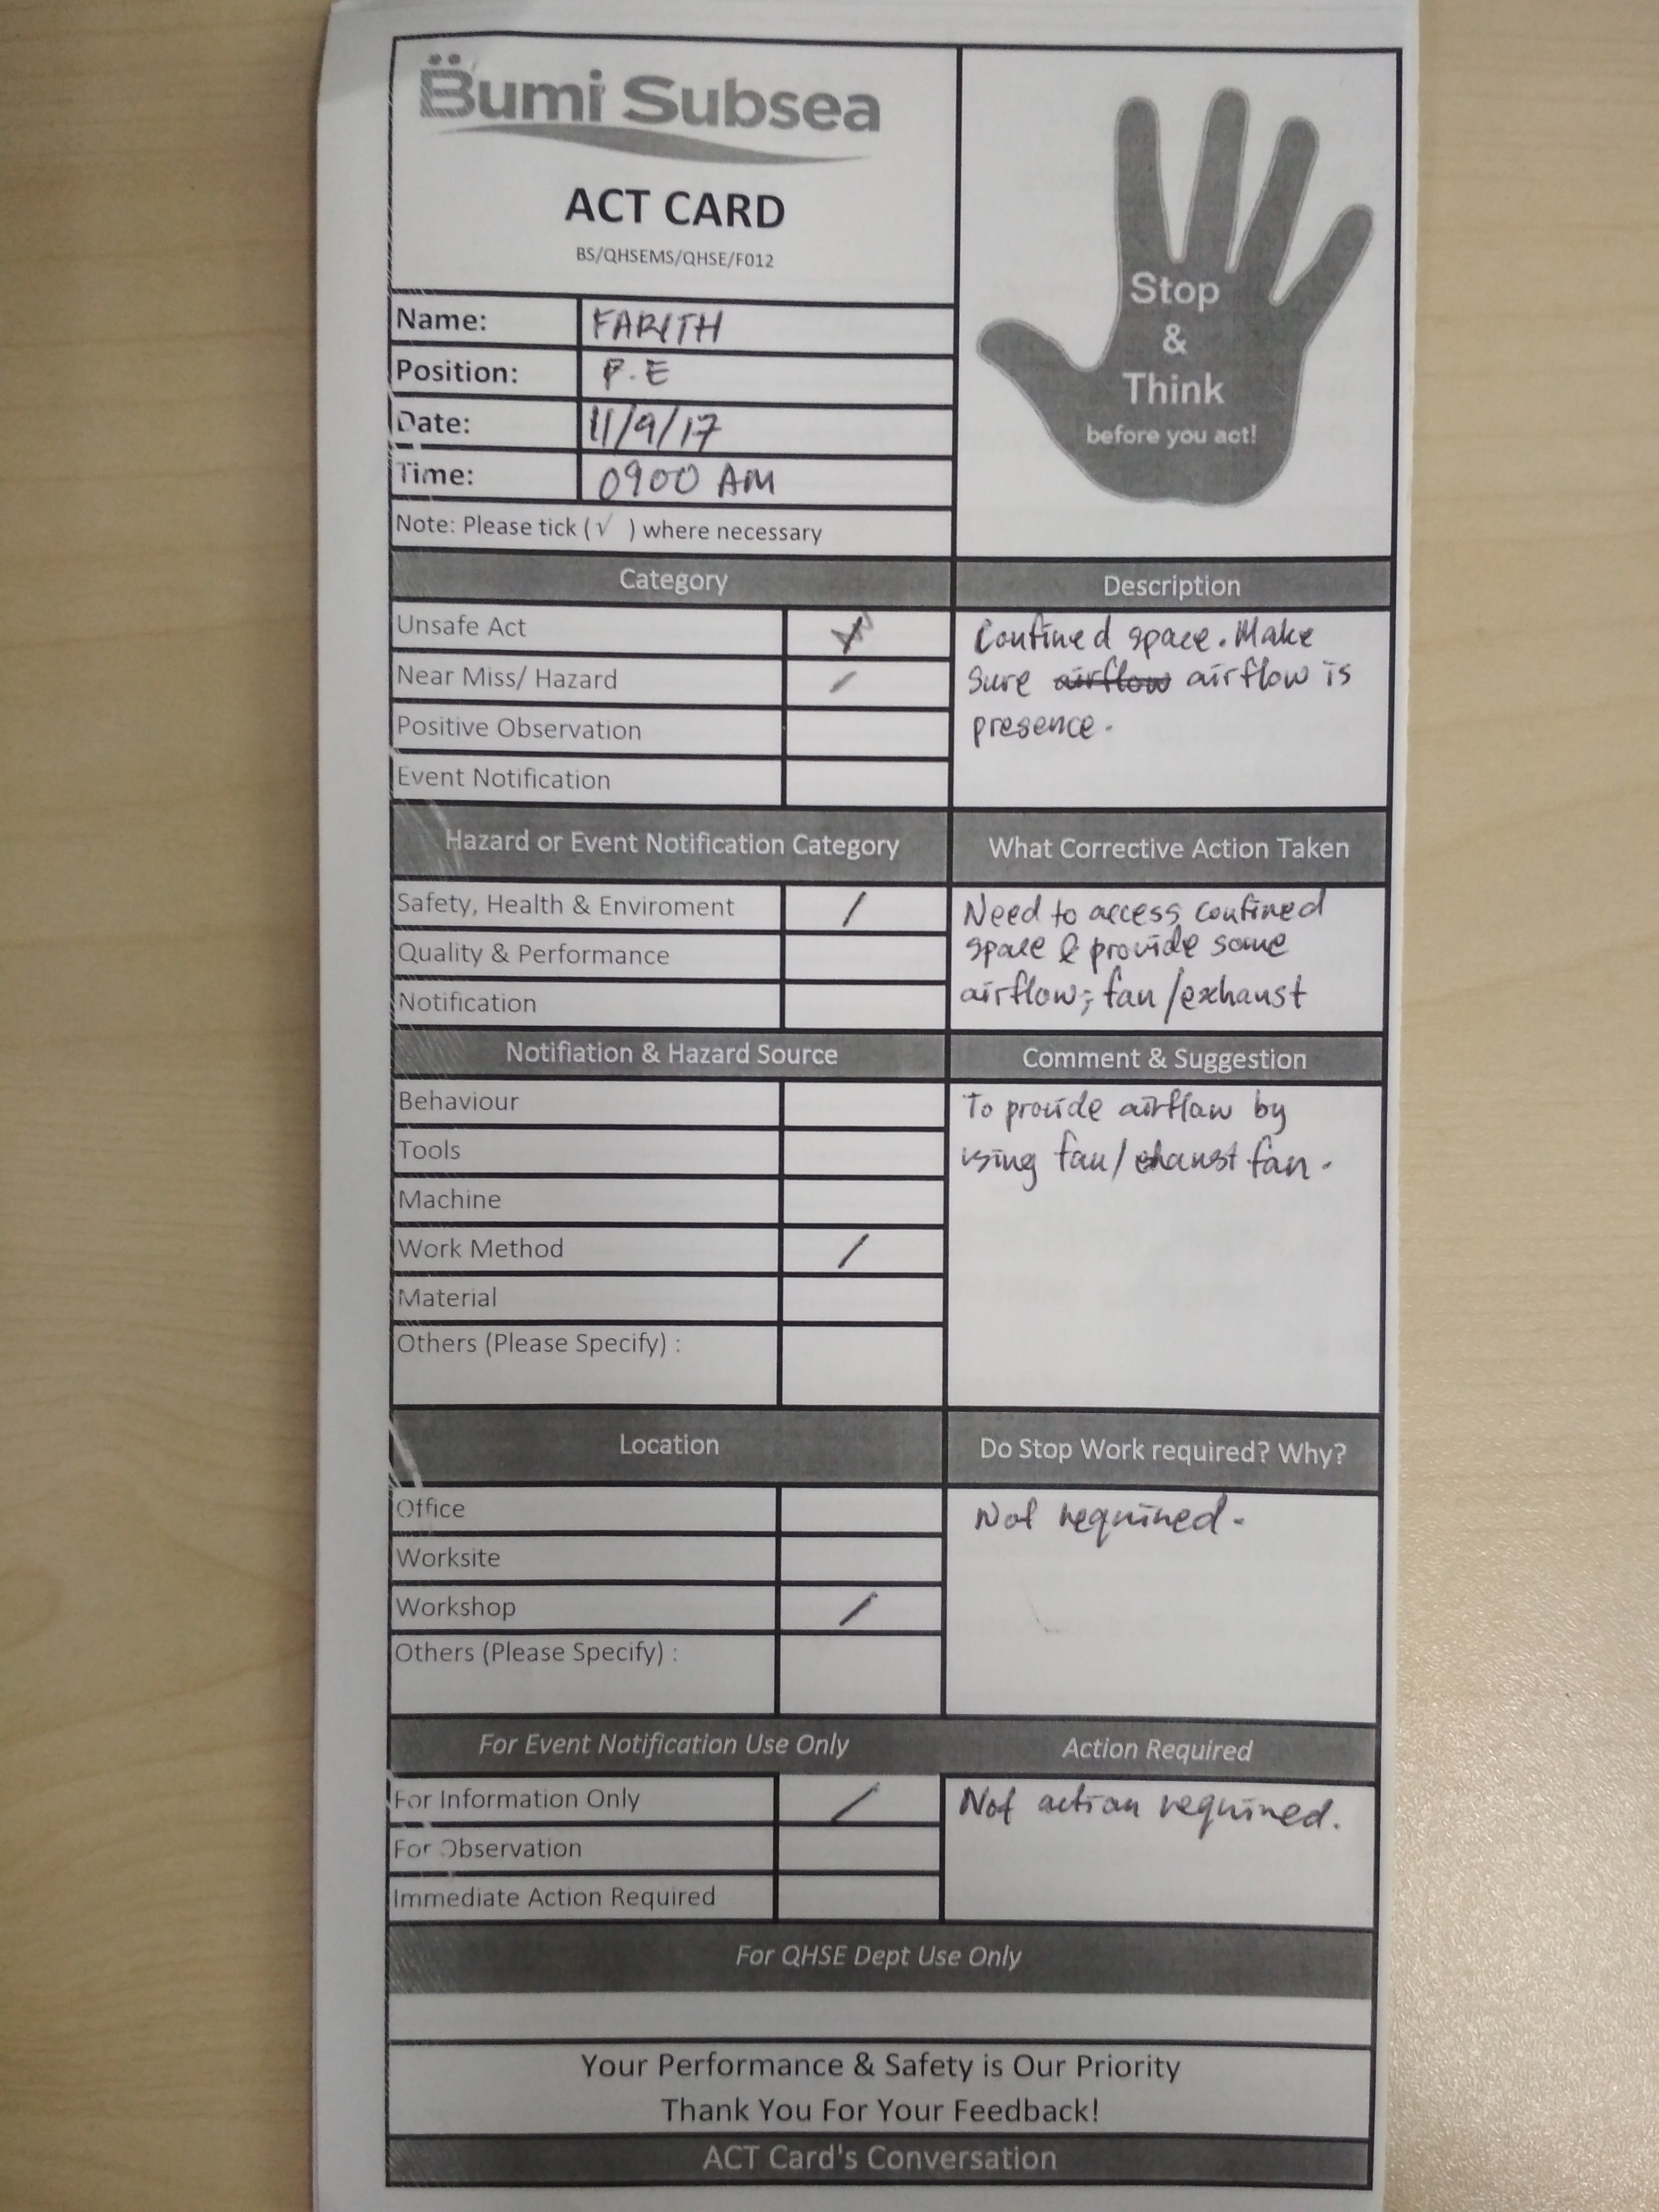 Bumi Subsea
ACT CARD
BS/QHSEMS/QHSE/F012
Stop
&
Think
before you act!
Name: FARITH
Position: P.E
Date: 11/9/17
Time: 0900 AM
Note: Please tick (√ ) where necessary
Category
Unsafe Act
Near Miss/ Hazard /
Positive Observation
Event Notification
Description
Confined space. Make
sure airflow airflow is
presence.
Hazard or Event Notification Category
Safety, Health & Enviroment /
Quality & Performance
Notification
What Corrective Action Taken
Need to access confined
space & provide some
airflow; fan/exhaust
Notifiation & Hazard Source
Behaviour
Tools
Machine
Work Method /
Material
Others (Please Specify) :
Comment & Suggestion
To provide airflow by
using fan/exhaust fan.
Location
Office
Worksite
Workshop /
Others (Please Specify) :
Do Stop Work required? Why?
Not required.
For Event Notification Use Only
For Information Only /
For Observation
Immediate Action Required
Action Required
Not action required.
For QHSE Dept Use Only
Your Performance & Safety is Our Priority
Thank You For Your Feedback!
ACT Card's Conversation